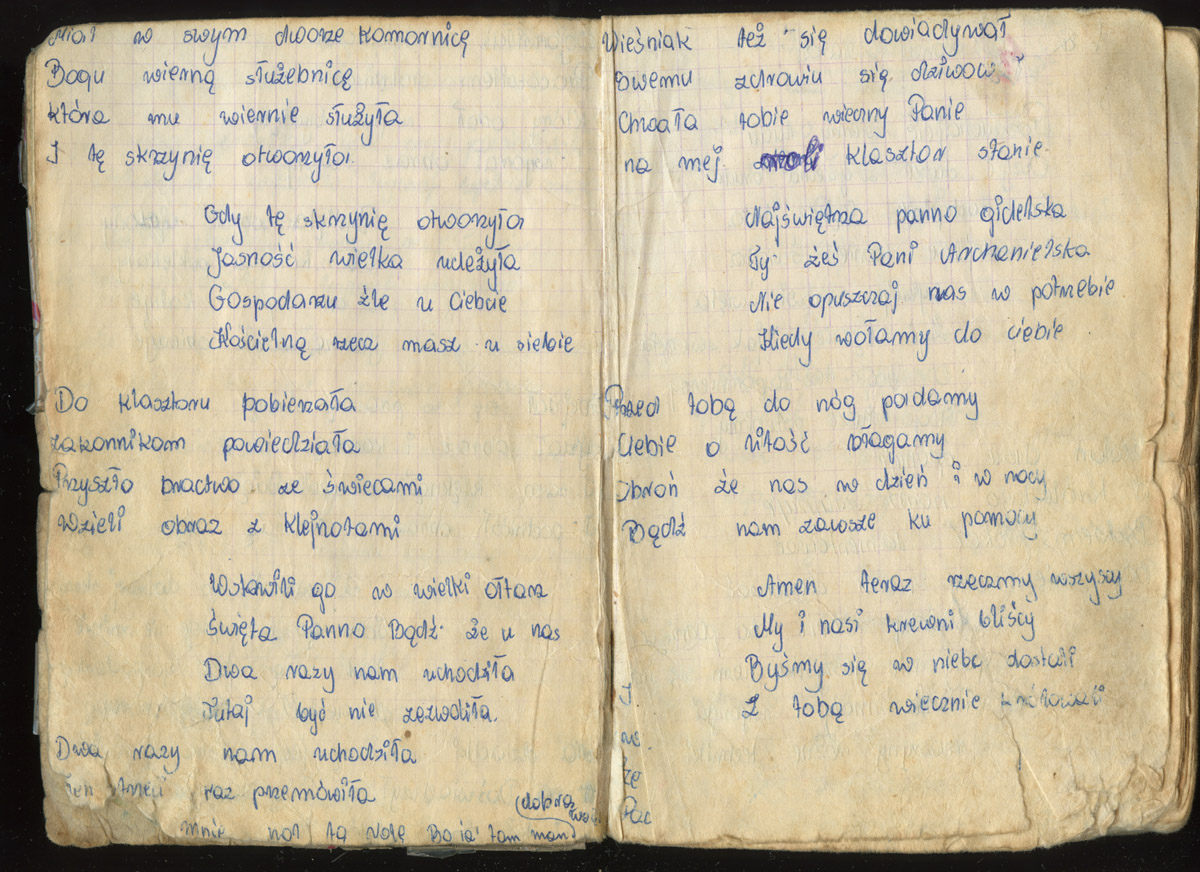 Miał w swym dworze komornicę
Bogu wierną służebnicę
która mu wiernie służyła
I tę skrzynię otworzyła
Gdy tę skrzynię otworzyła
Jasność wielka udeżyła
Gospodarzu źle u Ciebcie
Kościelną rzecz masz u siebie
Do klasztoru pobierzała
zakonnikom powiedziała
Przyszło bractwo ze świecami
Wzieli obraz z klejnotami
Wstawili go w wielki ołtarz
Święta Panno Bądź że u nas
Dwa razy nam uchodziła
Tutaj być nie zezwoliła.
Dwa razy nam uchodziła
raz przemówiła
(dobrą
mnie na tą rolę Bo ja tam mam
Wieśniak też się dowiadywał
swemu zdrowiu się dziwow
Chwała tobie wieczny Panie
na mej roli klasztor stanie.
Najświętrza panno gidelska
Ty żeś Pani Archanielska
Nie opuszczaj nas w potrzebie
Kiedy wołamy do ciebie
Przed tobą do nóg padamy
Ciebie o litość błagamy
Obroń że nas w dzień i w nocy
Bądź nam zawsze ku pomocy
Amen teraz rzeczmy wszyscy
My i nasi krewni bliścy
Byśmy się w niebo dostali
I.
Z tobą wiecznie królowali
w.
że
Pac